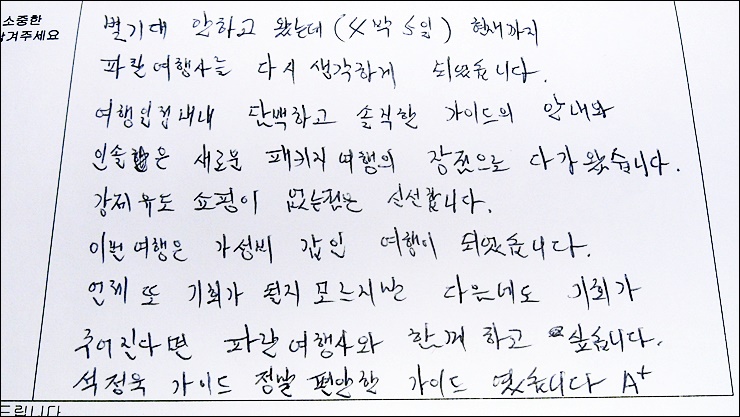 소중한
남겨주세요
별기대 안하고 왔는데 (4박 5일) 현재까지
파랑여행사는 다시 생각하게 되었습니다.
여행일정내내 담백하고 솔직한 가이드의 안내와
인솔은 새로운 패키지 여행의 장점으로 다가 왔습니다.
강제 유도 쇼핑이 없는점은 신선합니다.
이번 여행은 가성비 갑인 여행이 되었습니다.
언제 또 기회가 될지 모르지만 다음에도 기회가
주어진다면 파랑여행사와 함께 하고 싶습니다.
석정욱 가이드 정말 편안한 가이드 였습니다 A+
드립니다